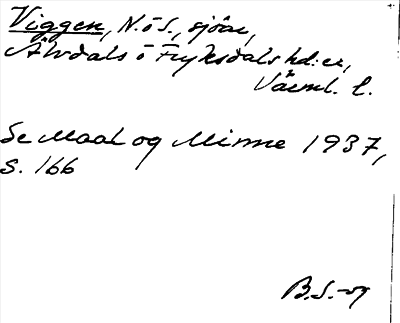 Viggen, N. o S., sjöar,
Älvdals o Fryksdals hd:er,
Värml. l.
Se Maal og Minne 1937,
S. 166
B.S-g